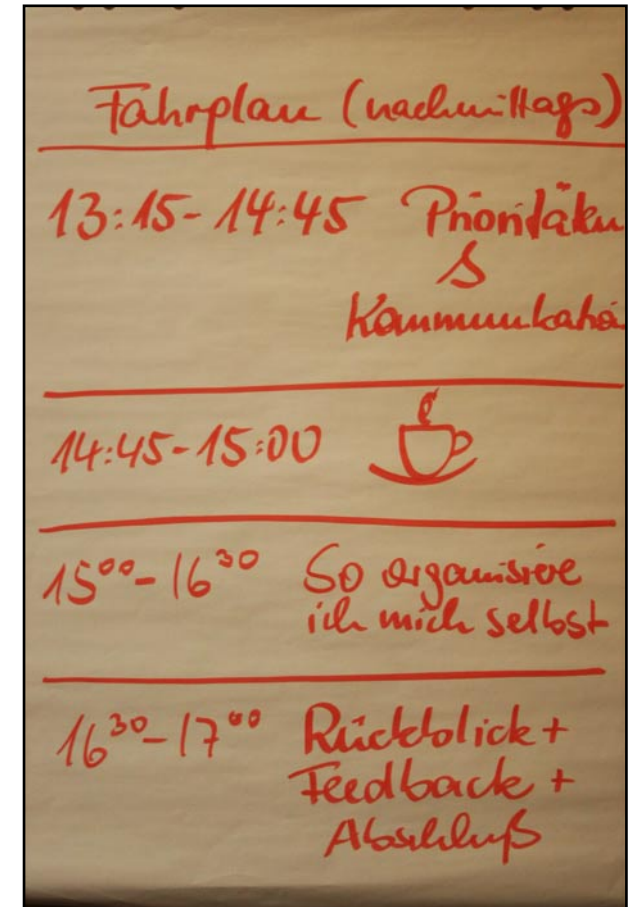 Fahrplan (nachmittags)
13:15-14:45 Prioritäten
&
Kommunikation
14:45-15:00
15⁰⁰-16³⁰ So organisiere
ich mich selbst
16³⁰-17⁰⁰ Rückblick+
Feedback +
Abschluß